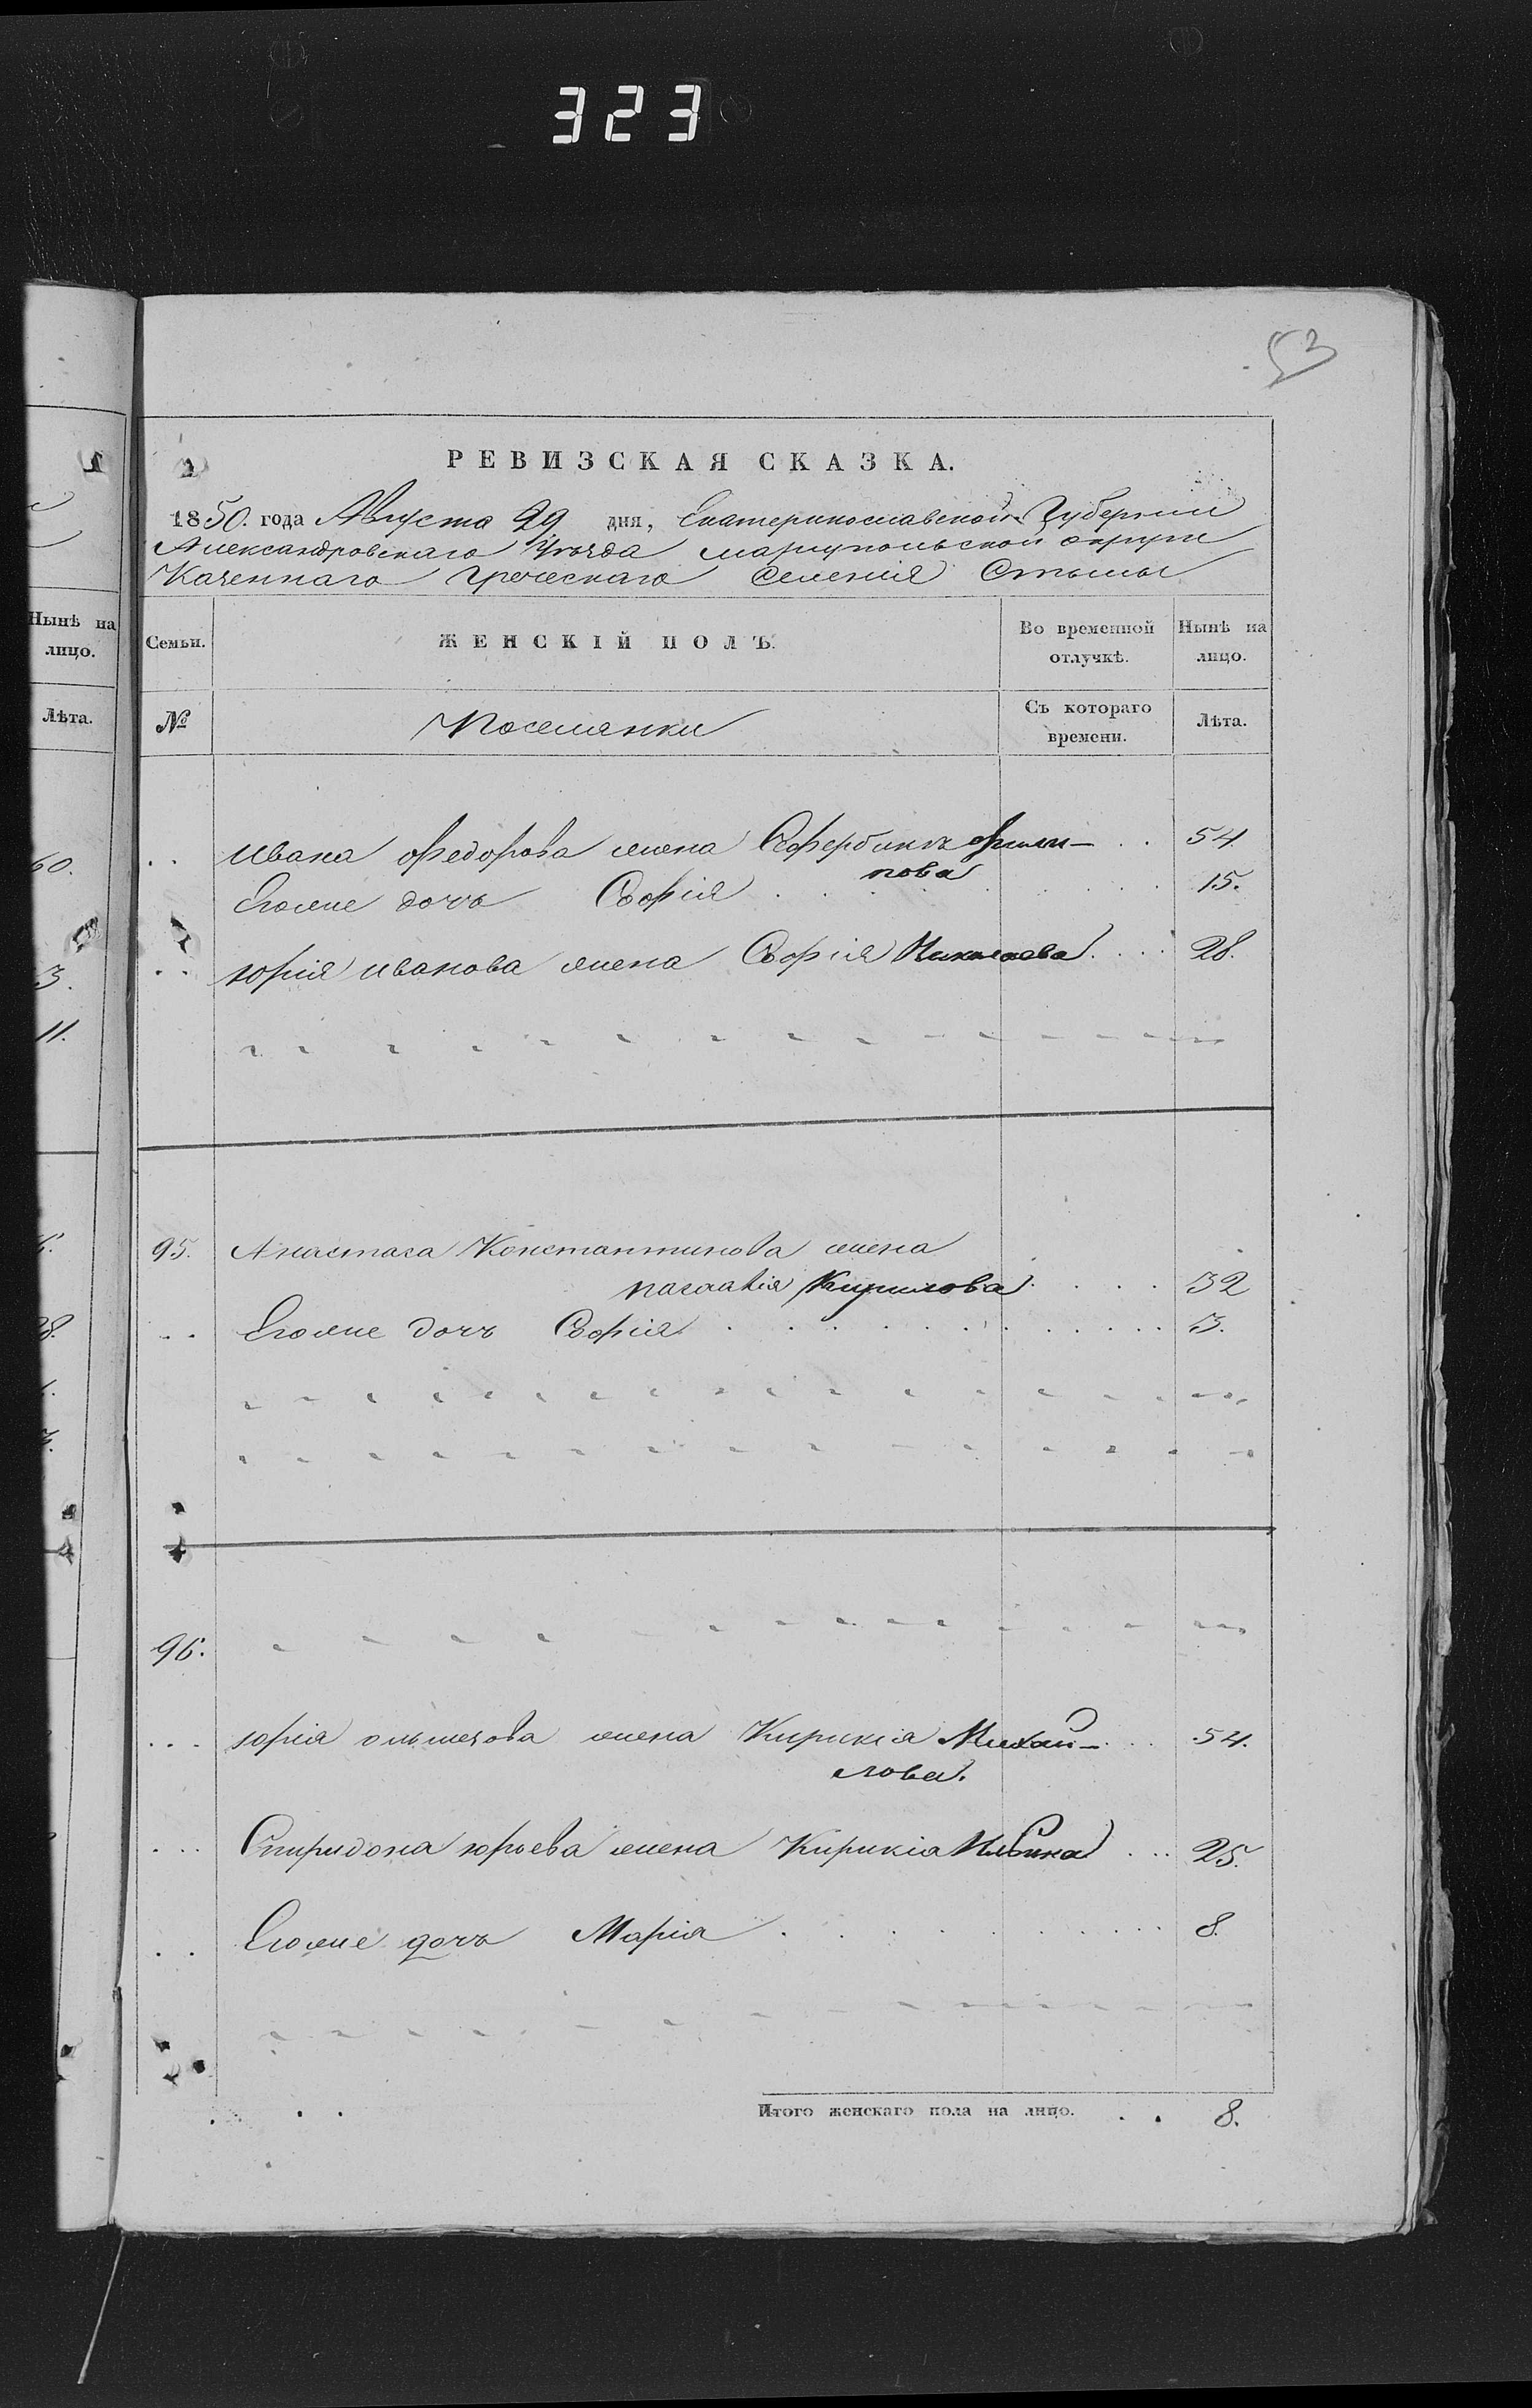 323
53
РЕВИЗСКАЯ СКАЗКА.
1850. года Августа 29 дня, Екатеринославской Губернии
Александровскаго Уѣзда мариупольской округи
Казеннаго греческаго Селенія Стылы
Семьи. ЖЕНСКІЙ ПОЛЪ. Во временной отлучкѣ. Нынѣ на лицо.
№ Поселянки Съ котораго времени. Лѣта.
Ивана Федорова жена Сфербике Филип- 54.
пова
Егоже дочь Софія 15.
юрія иванова жена Софія Николаева 28.
95. Анастаса Константинова жена
Кирилова 32
Егоже дочь Софія 3.
96.
юрія жена Кирикія Михай- 54.
лова.
Спиридона юрьева жена Кирикія Ильина 25.
Егоже дочь Марія 8.
Итого женскаго пола на лицо. 8.
Нынѣ на
лицо.
Лѣта.
60.
3.
11.